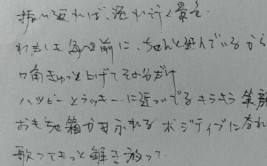 振り返れば、流れ行く景色
わたしを毎日前に、ちゃんと運んでいるから
口角きゅっと上げてその分だけ
ハッピーとラッキーに近づいてるキラキラ笑顔
おもちゃ箱から溢れる ポジティブになれ
歌ってもっと解き放って